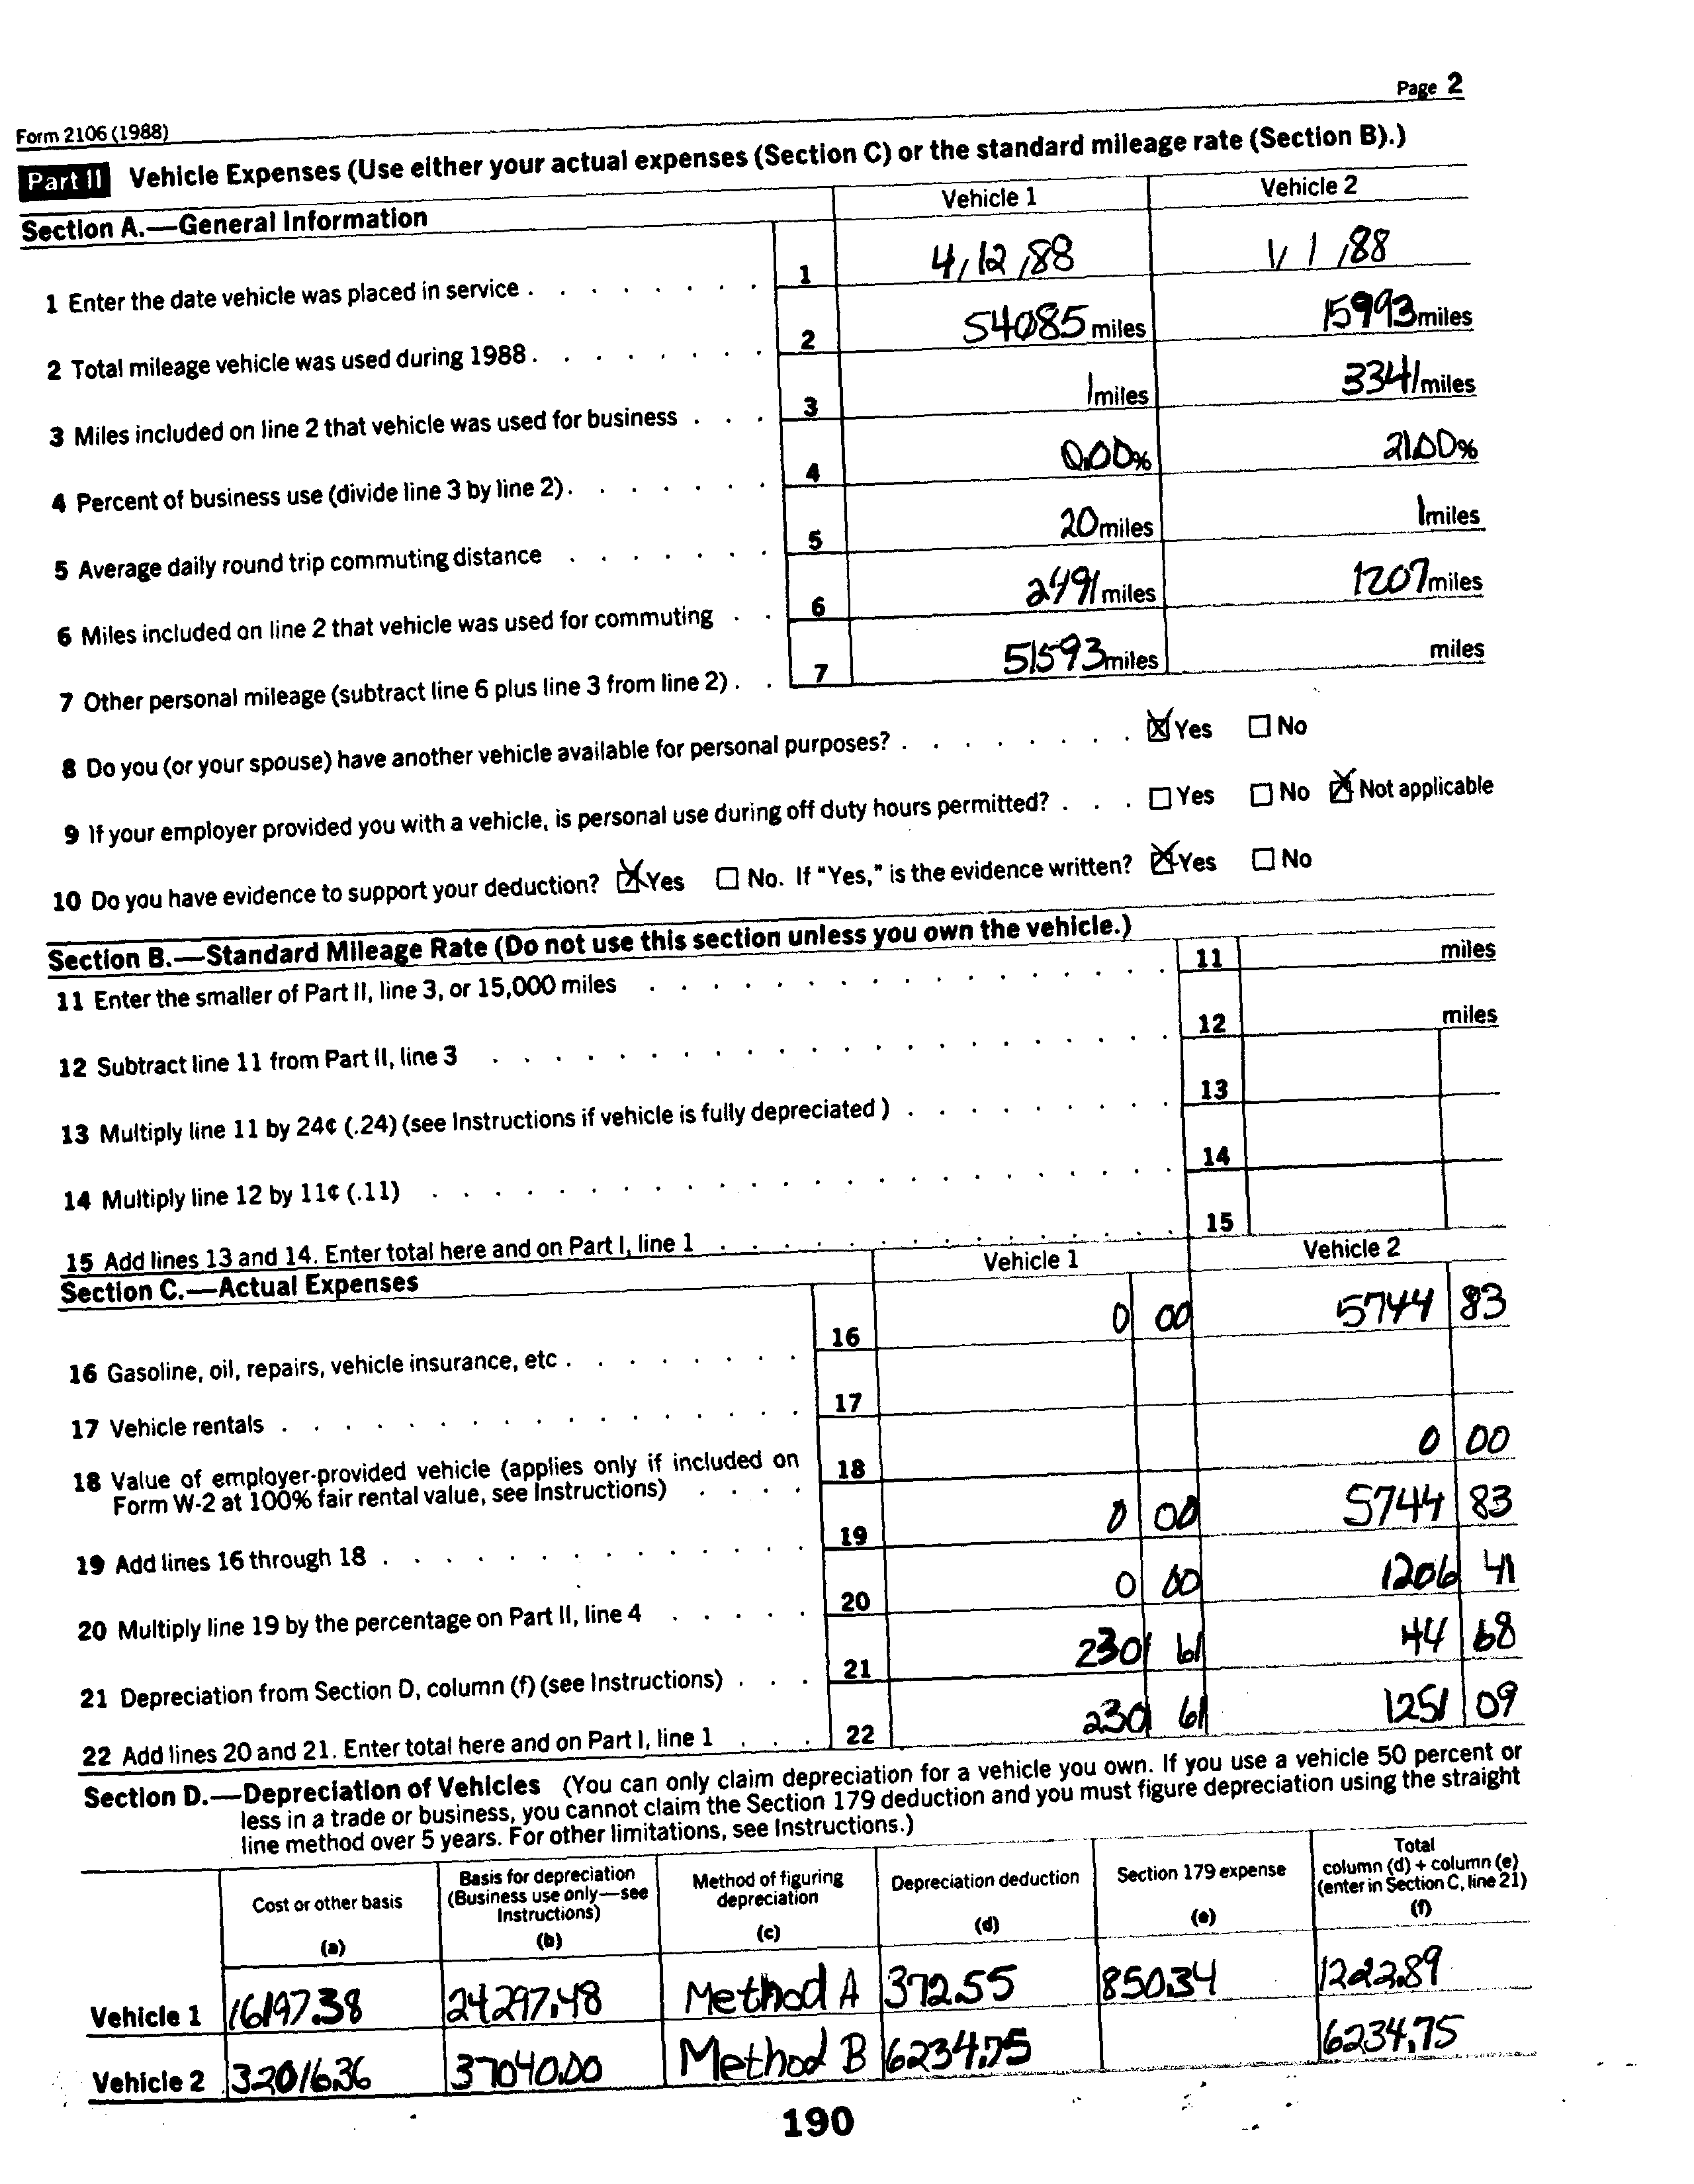 Page 2
Form 2106 (1988)
Part II Vehicle Expenses (Use either your actual expenses (Section C) or the standard mileage rate (Section B).)
Section A.—General Information Vehicle 1 Vehicle 2
1 Enter the date vehicle was placed in service . . . . . . . . 1 4/12/88 1/1/88
2 Total mileage vehicle was used during 1988 . . . . . . . . 2 54085 miles 15993 miles
3 Miles included on line 2 that vehicle was used for business . . . 3 1 miles 3341 miles
4 Percent of business use (divide line 3 by line 2) . . . . . . . 4 0.00% 21.00%
5 Average daily round trip commuting distance . . . . . . . 5 20 miles 1 miles
6 Miles included on line 2 that vehicle was used for commuting . . 6 2491 miles 1207 miles
7 Other personal mileage (subtract line 6 plus line 3 from line 2) . . 7 51593 miles miles
8 Do you (or your spouse) have another vehicle available for personal purposes? . . . . . . . . ☒ Yes ☐ No
9 If your employer provided you with a vehicle, is personal use during off duty hours permitted? . . . ☐ Yes ☐ No ☒ Not applicable
10 Do you have evidence to support your deduction? ☒ Yes ☐ No. If "Yes," is the evidence written? ☒ Yes ☐ No
Section B.—Standard Mileage Rate (Do not use this section unless you own the vehicle.)
11 Enter the smaller of Part II, line 3, or 15,000 miles . . . . . . . . . . . . . . . . 11 miles
12 Subtract line 11 from Part II, line 3 . . . . . . . . . . . . . . . . . . . . . 12 miles
13 Multiply line 11 by 24¢ (.24) (see Instructions if vehicle is fully depreciated ) . . . . . . . . . 13
14 Multiply line 12 by 11¢ (.11) . . . . . . . . . . . . . . . . . . . . . . . 14
15 Add lines 13 and 14. Enter total here and on Part I, line 1 . . . . . . . . . . . . . . . 15
Section C.—Actual Expenses Vehicle 1 Vehicle 2
16 Gasoline, oil, repairs, vehicle insurance, etc . . . . . . . . 16 0 00 5744 83
17 Vehicle rentals . . . . . . . . . . . . . . . . . 17
18 Value of employer-provided vehicle (applies only if included on
Form W-2 at 100% fair rental value, see Instructions) . . . . 18 0 00
19 Add lines 16 through 18 . . . . . . . . . . . . . . 19 0 00 5744 83
20 Multiply line 19 by the percentage on Part II, line 4 . . . . . 20 0 00 1206 41
21 Depreciation from Section D, column (f) (see Instructions) . . . 21 230 61 44 68
22 Add lines 20 and 21. Enter total here and on Part I, line 1 . . . 22 230 61 1251 09
Section D.—Depreciation of Vehicles (You can only claim depreciation for a vehicle you own. If you use a vehicle 50 percent or
less in a trade or business, you cannot claim the Section 179 deduction and you must figure depreciation using the straight
line method over 5 years. For other limitations, see Instructions.)
Cost or other basis (a) Basis for depreciation (Business use only—see Instructions) (b) Method of figuring depreciation (c) Depreciation deduction (d) Section 179 expense (e) Total column (d) + column (e) (enter in Section C, line 21) (f)
Vehicle 1 16197.38 24297.48 Method A 372.55 850.34 1222.89
Vehicle 2 32016.36 37040.00 Method B 6234.75 6234.75
190